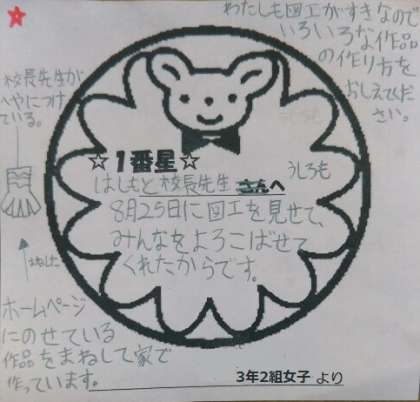 わたしも図工がすきなので
いろいろな作品
の作り方を
おしえてくだ
さい。
校長先生が
へやにつけ
ている。
☆1番星☆
はしもと校長先生 さんへ
うしろも
8月25日に図工を見せて、
みんなをよろこばせて
くれたからです。
ホームページ
にのせている
作品をまねして家で
作っています。
3年2組女子 より